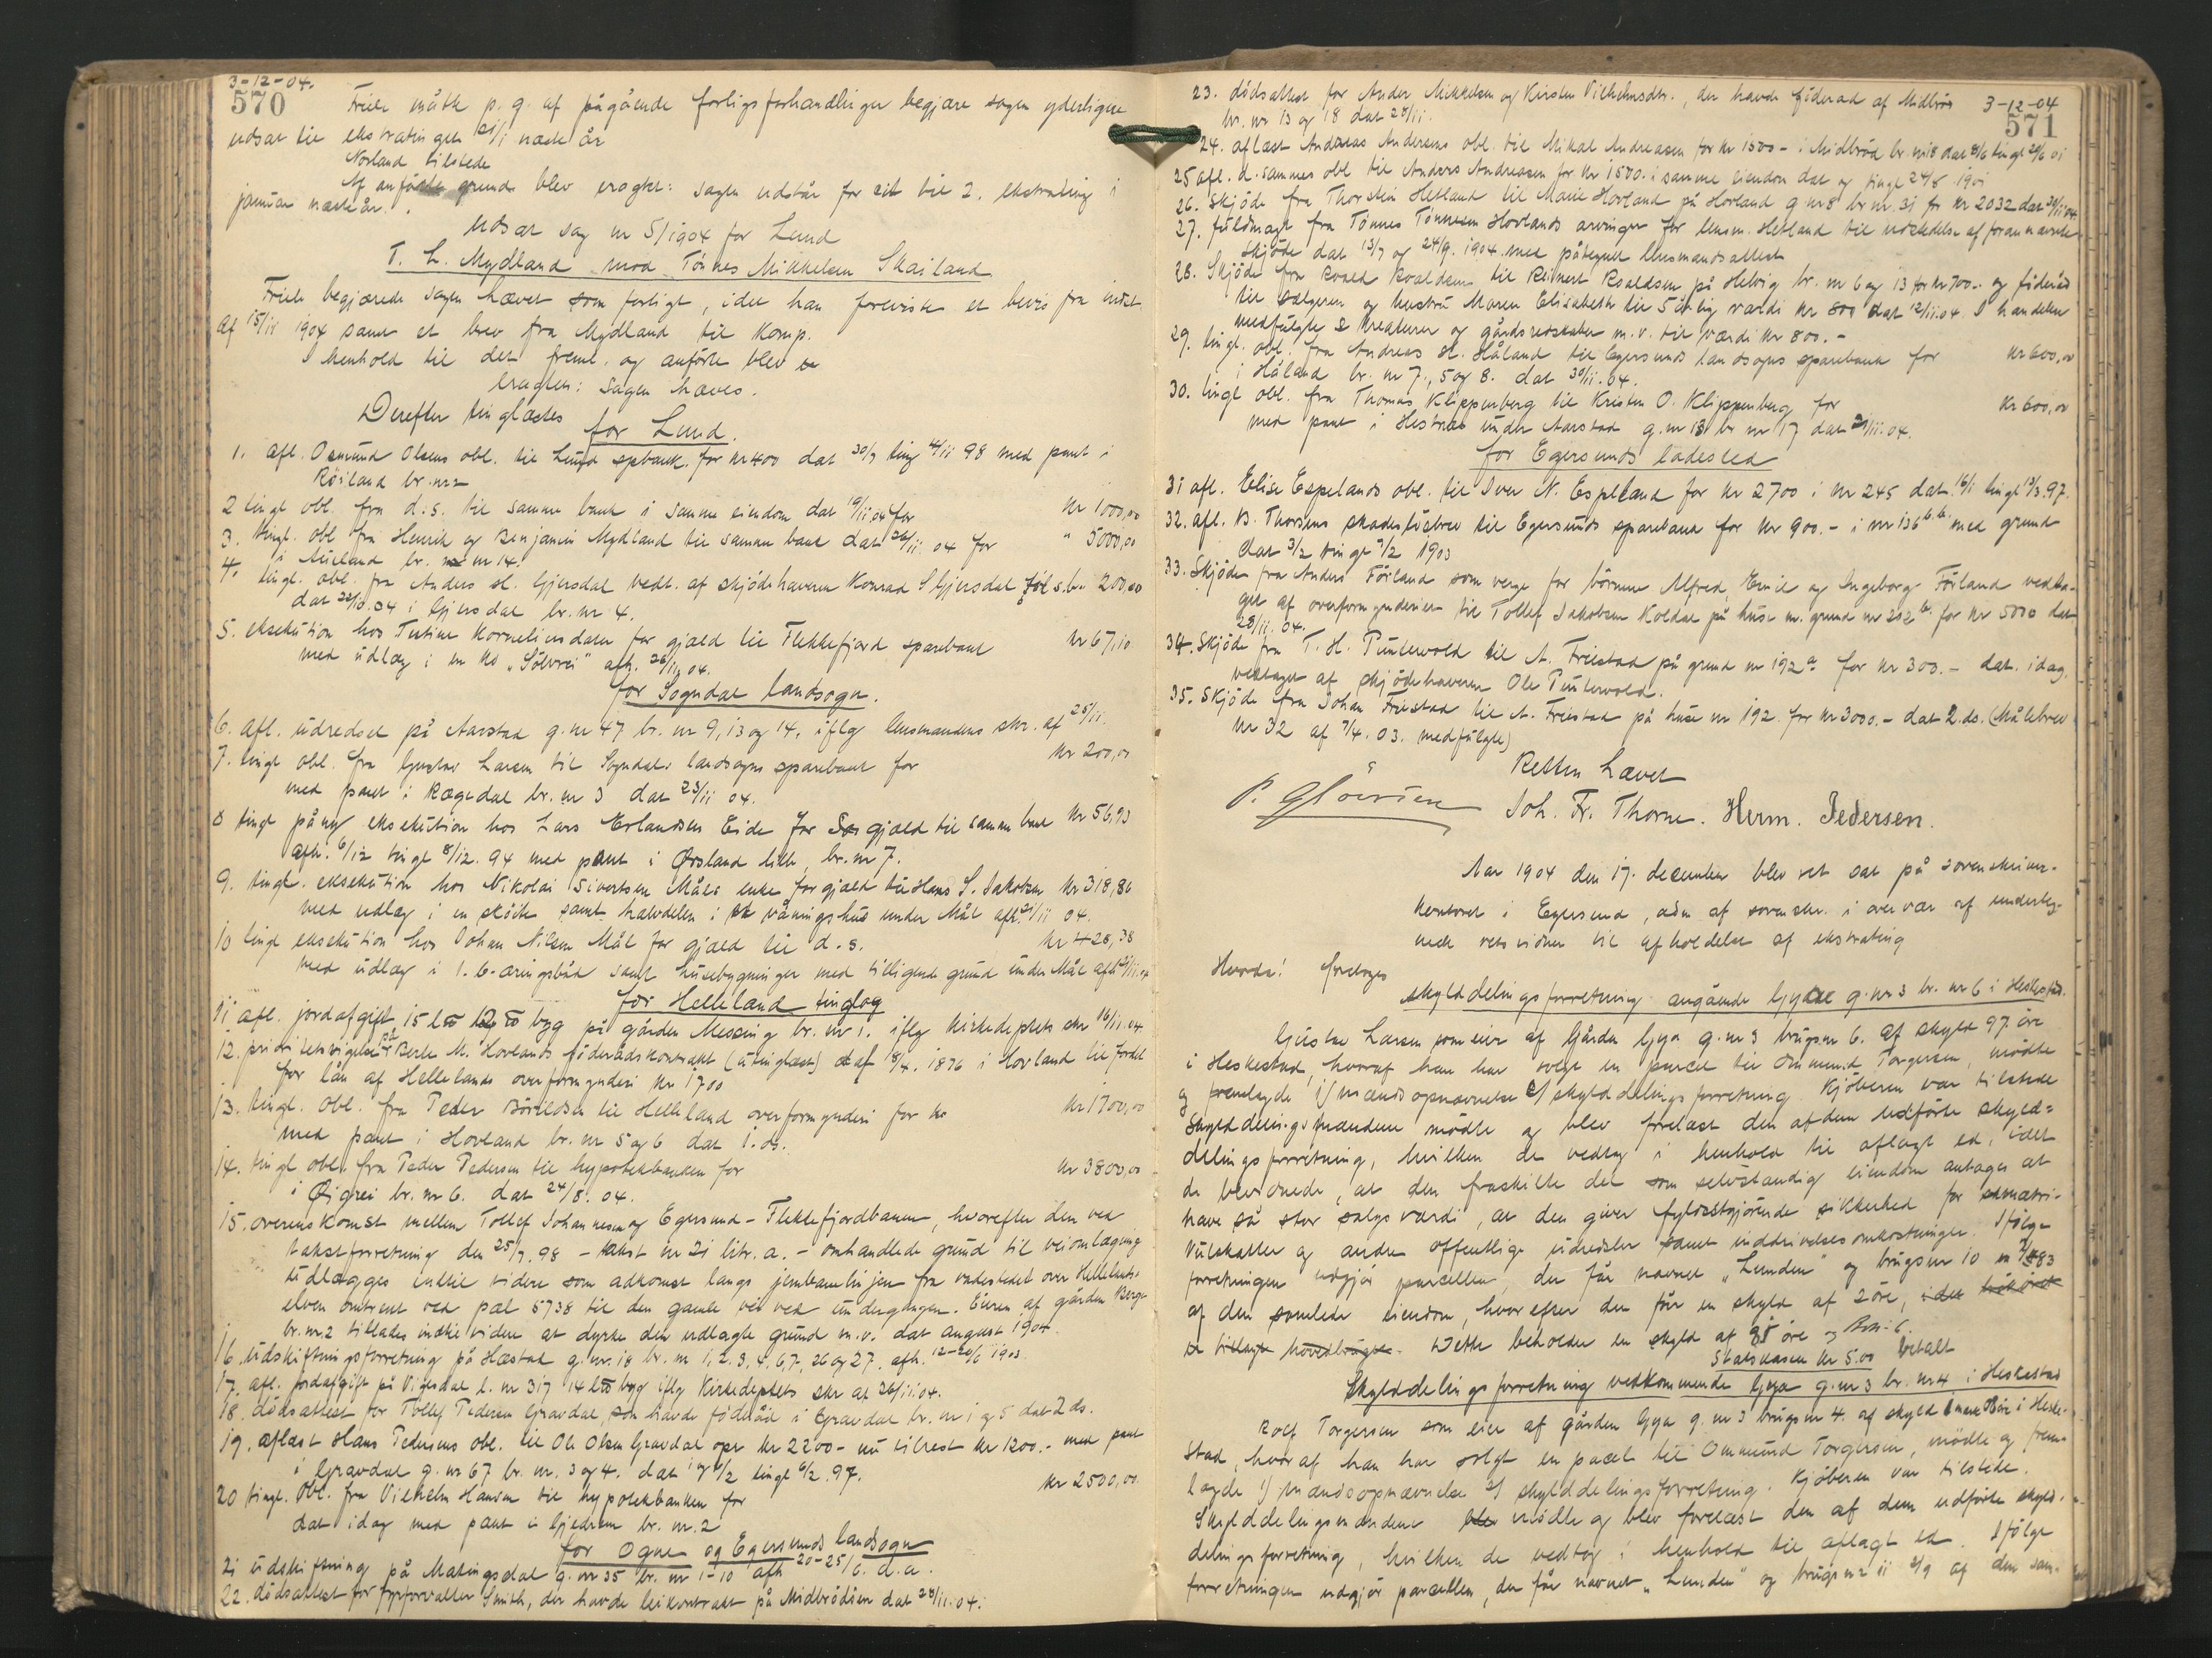 3-12-04.
570
Friele måtte p. g. af pågående forligsforhandlinger begjære sagen yderligere
udsat til ekstratinget 21/1 næste år
Norland tilstede
Af anførte grunde blev eragtet: sagen udstår for sit til 2. ekstrating i
januar næste år.
Udsat sag nr 5/1904 for Lund
T. L. Mydland mod Tønnes Mikkelsen Skailand
Friele begjærede sagen hævet som forligt, idet han foreviste et bevis fra indst.
af 15/11 1904 samt et brev fra Mydland til komp.
I henhold til det freml. og anførte blev
eragtet: Sagen hæves.
Derefter tinglæstes
for Lund.
1. afl. Osmund Olsens obl. til Lund spbank for kr 400 dat 30/7 tingl 4/11 98 med pant i
Röiland br. nr 2
2 tingl obl. fra d.s. til samme bank i samme eiendom dat 19/11 04 for kr 1000,00
3. tingl. obl fra Henrik og Benjamin Mydland til samme bank dat 26/11 04 for " 5000,00
i Aueland br. nr 14.
4. tingl. obl. fra Anders H. Gjersdal vedt. af skjødehaveren Konrad S Gjersdal til s.b. 200,00
dat 22/10.04 i Gjersdal br. nr 4.
5. eksekution hos Tertine Korneliusdatter for gjæld til Flekkefjord sparebank kr 67,10
med udlæg i en ko "Sölvrei" afh. 26/11 04.
for Sogndal landsogn.
6. afl. udredsel på Aarstad g. nr 47 br. nr 9, 13 og 14, iflg lensmandens skr. af 25/11.
7. tingl obl. fra Gustav Larsen til Sogndals landsogns sparebank for kr 200,00
med pant i Rægedal br. nr 3 dat 23/11 04.
8 tingl påny eksekution hos Lars Erlandsen Eide for gjæld til samme bank kr 56,93
afh. 6/12 tingl 8/12. 94 med pant i Ørsland lille br. nr 7.
9. tingl. eksekution hos Nikolai Sivertsen Måls enke for gjæld til Hans S. Jakobsen kr 318,86
med udlæg i en skøite samt halvdelen i et våningshus under Mål afh. 21/11 04.
10 tingl eksekution hos Johan Nilsen Mål for gjæld til d.s. kr 428,38
med udlæg i 1. 6-æringsbåd samt husebygninger med tilligende grund under Mål afh 21/11.04
for Helleland tinglag
11 afl. jordafgift 15 byg på gården Messing br. nr 1. iflg kirkedeptets skr 16/11.04
12. prioritetsvigelse på Berte M. Hovlands føderådskontrakt (utinglæst) af 18/4. 1876 i Hovland til fordel
for lån af Hellelands overformynderi kr 1700
13. tingl. obl. fra Peder Börildsen til Helleland overformynderi for kr 1700,00
med pant i Hovland br. nr 5 og 6 dat 1. ds.
14. tingl obl. fra Peder Pedersen til hypotekbanken for kr 3800,00
i Øigrei br. nr 6. dat 24/8. 04.
15. overenskomst mellem Tollef Johannesen og Egersund-Flekkefjordbanen, hvorefter den ved
takstforretning den 25/7. 98 - takst nr 21 litr. a. - omhandlede grund til veiomlægning
udlægges indtil videre som adkomst langs jernbanelinjen fra vadestedet over Hellelands-
elven omtrent ved pæl 5738 til den gamle vei ved undergangen. Eieren af gården Berge
br. nr 2 tillades indtil videre at dyrke den udlagte grund m. v. dat august 1904.
16. udskiftningsforretning på Hæstad g. nr. 18 br. nr 1, 2, 3, 4, 6, 7, 26 og 27. afh. 12-20/6 1903
17. afl. jordafgift på Vigesdal l. nr 317 14 byg iflg Kirkedeptets skr af 26/11.04.
18. dødsattest for Tollef Pedersen Gravdal, som havde føderåd i Gravdal br. nr 1 og 5 dat 2 ds.
19. aflæst Hans Pedersens obl. til Ole Olsen Gravdal opr kr 2200 - nu tilrest kr 1200.- med pant
i Gravdal g. nr 67 br. nr. 3 og 4. dat og tingl 6/2. 97.
20 tingl. obl. fra Vilhelm Hansen til hypotekbanken for kr 2500,00
dat idag med pant i Gjedrem br. nr. 2
for Ogne og Egersunds landsogn
21 udskiftning på Maningsdal g. nr 35 br. nr 1-10 afh 20-25/6. d. a.
22. dødsattest for fyrforvalter Smith, der havde leiekontrakt på Midbrødöen dat 28/11.04.
23. dödsattest for Ander Mikkelsen og Kirsten Vilhelmsdtr., der havde føderad af Midbrød 3-12-04
571
br. nr 13 og 18 dat 28/11.
24. aflæst Andreas Andersens obl. til Mikal Andreasen for kr 1500 - i Midbrød br. nr 18 dat 8/6 tingl 24/6 01
25 afl. d. sammes obl til Anders Andreasen for kr 1500. i samme eiendom dat og tingl 24/8 1901
26. skjöde fra Thorstein Hetland til Marie Hovland på Hovland g. nr 8 br. nr. 31 for kr 2032 dat 29/11 04
27. fuldmagt fra Tönnes Tönnesen Hovlands arvinger for lensm. Hetland til udstedelse af forannævnte
skjöde dat 13/7 og 24/9. 1904 med påtegnet lensmandsattest
28. Skjöde fra Roald Roaldsen til Reinert Roaldsen på Helvig br. nr 6 og 13 for kr 700.- og föderåd
til sælgeren og hustru Maren Elisabeth til 5 årlig værdi kr 800 dat 12/11.04. I handelen
medfulgte 2 kreaturer og gårdsredskaber m. v. til værdi kr 800.-
29. tingl. obl. fra Andreas H. Håland til Egersunds landsogns sparebank for kr 600,00
i Håland br. nr 7, 5 og 8. dat 30/11.04.
30. tingl obl. fra Thomas Klippenberg til Kristen O. Klippenberg for kr 600,00
med pant i Hestnes under Aarstad g. nr 13 br nr 17 dat 29/11.04.
for Egersunds ladested
31 afl. Elise Espelands obl. til Iver N. Espeland for kr 2700 i nr 245 dat. 16/1 tingl 13/3.97.
32. afl. B. Thorsens skadesløsbrev til Egersunds sparebank for kr 900.- i nr 136 b.b. med grund
dat 3/2 tingl 7/2 1903
33. Skjöde fra Anders Förland som verge for börnene Alfred, Emil og Ingeborg Förland vedta-
get af overformynderiet til Tollef Jakobsen Koldal på huse m. grund nr 202 b. for kr 5000 dat
28/11. 04.
34. Skjöde fra T. H. Puntervold til A. Friestad på grund nr 192 a for kr 300.- dat. idag.
vedtaget af skjødehaveren Ole Puntervold.
35. Skjöde fra Johan Friestad til A. Friestad på huse nr 192. for kr 3000.- dat 2. ds. (Målebrev
nr 32 af 7/4. 03. medfulgte)
Retten hævet
Joh. Fr. Thorne. Herm. Pedersen.
Aar 1904 den 17. december blev ret sat på sorenskriver-
kontoret i Egersund, adm af sorenskr. i overvær af underteg-
nede retsvidner til afholdelse af ekstrating
Hvorda! foretoges
skylddelingsforretning angående Gyae g. nr 3 br. nr 6 i Heskestad.
Gustav Larsen som eier af Gården Gya g. nr 3 brugsnr 6. af skyld 97 öre
i Heskestad, hvoraf han har solgt en parcel til Ommund Torgersen, mödte
og fremlagde 1/ mændsopnævnelse 2/ skylddelingsforretning. Kjöberen var tilstede
Skylddelingsmændene mödte og blev forelæst den af dem udförte skyld-
delingsforretning, hvilken de vedtog i henhold til aflagt ed, idet
de bevidnede, at den fraskilte del som selvstændig eiendom antages at
have så stor salgsværdi, at den giver fyldestgjørende sikkerhed for panteri-
tulskatter og andre offentlige udredsler samt inddrivelsesomkostninger. Ifölge
forretningen udgjör parcellen, der får navnet "Lunden" og brugsnr 10
af den samlede eiendom, hvorefter den får en skyld af 2 öre,
Dette beholder en skyld af 95 öre
Statskassen kr 5.00 betalt
Skylddelingsforretning vedkommende Gya g. nr 3 br. nr. 4 i Heskestad
Rolf Torgersen som eier af gården Gya g. nr 3 brugsnr 4. af skyld 1 mark öre i Heske-
stad, hvoraf han har solgt en parcel til Ommund Torgersen, mödte og frem-
lagde 1/ mændsopnævnelse 2/ skylddelingsforretning. Kjöberen var tilstede.
Skylddelingsmændene mödte og blev forelæst den af dem udförte skyld-
delingsforretning, hvilken de vedtog i henhold til aflagt ed. Ifölge
forretningen udgjör parcellen, der får navnet "Lunden" og brugsnr 11 2/9 af den sam-